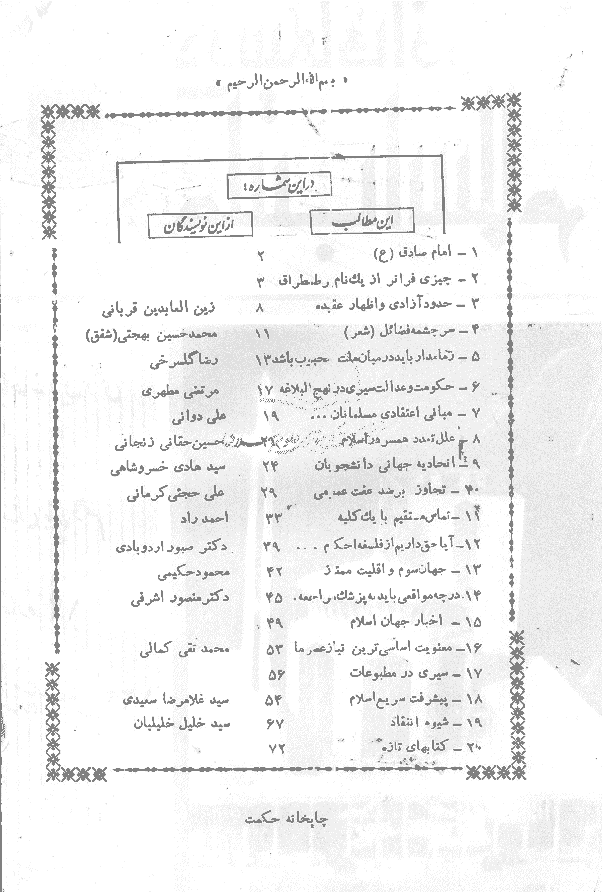 « بسم الله الرحمن الرحیم »
در این شماره :
این مطالب از این نویسندگان
۱ – امام صادق (ع) ۲
۲ – چیزی فراتر از یك نام پرطمطراق ۳
۳ – حدود آزادی و اظهار عقیده ۸ زین العابدین قربانی
۴ – سرچشمه فضائل (شعر) ۱۱ محمدحسین بهجتی (شفق)
۵ – زمامدار باید در میان ملت محبوب باشد ۱۳ رضا گلسرخی
۶ – حکومت و عدالت سیری در نهج البلاغه ۱۷ مرتضی مطهری
۷ – مبانی اعتقادی مسلمانان ... ۱۹ علی دوانی
۸ – علل تعدد همسر در اسلام ۲۱ حسین حقانی زنجانی
۹ – اتحادیه جهانی دانشجویان ۲۴ سید هادی خسروشاهی
۱۰ – تجاوز برضد عفت عمومی ۲۹ علی حجتی کرمانی
۱۱ – تماس مستقیم با یك کلیه ۳۳ احمد راد
۱۲ – آیا حق داریم از فلسفه احکم ... ۳۹ دکتر صبور اردوبادی
۱۳ – جهان سوم و اقلیت ممتاز ۴۲ محمود حکیمی
۱۴ – درچه مواقعی باید به پزشك مراجعه. ۴۵ دکتر منصور اشرفی
۱۵ – اخبار جهان اسلام ۴۹
۱۶ – معنویت اساسی ترین نیاز عصر ما ۵۳ محمد تقی کمالی
۱۷ – سیری در مطبوعات ۵۶
۱۸ – پیشرفت سریع اسلام ۵۴ سید غلامرضا سعیدی
۱۹ – شیوه انتقاد ۶۷ سید خلیل خلیلیان
۲۰ – کتابهای تازه ۷۲
چاپخانه حکمت